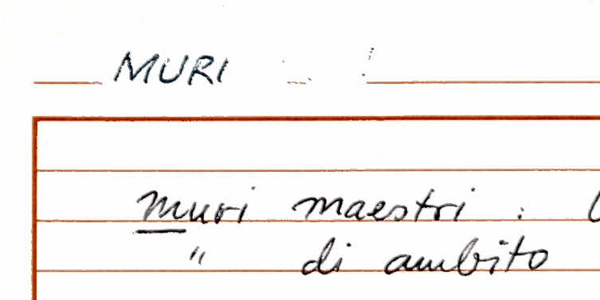 MURI
muri maestri :
" di ambito